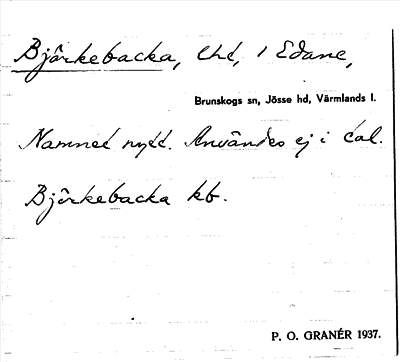 Björkebacka, lhd, i Edane,
Brunskogs sn, Jösse hd, Värmlands l.
Namnet nytt. Användes ej i tal.
Björkebacka kb.
P. O. GRANÉR 1937.